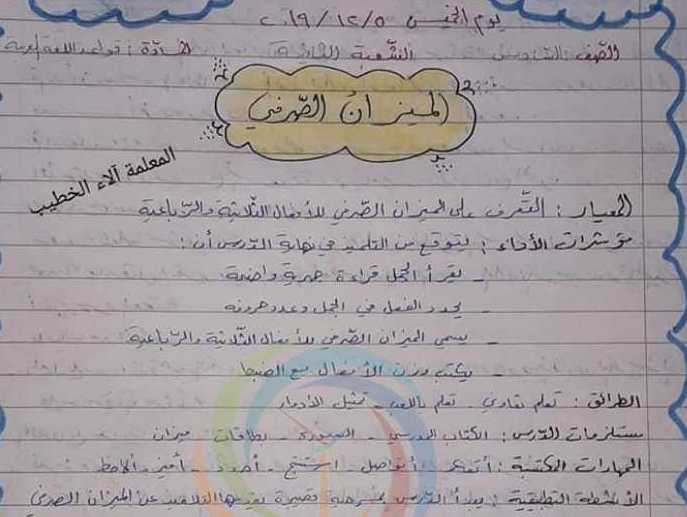 يوم الخميس ٢٠١٩/١٢/٥
الصف: السادس الشعبة الثانية المادة: قواعد اللغة العربية
الميزان الصرفي
المعلمة آلاء الخطيب
المعيار: التعرف على الميزان الصرفي للأفعال الثلاثية والرباعية
مؤشرات الأداء: يتوقع من التلميذ في نهاية الدرس أن:
- يقرأ الجمل قراءة جهرية واضحة
- يحدد الفعل في الجمل وعدد حروفه
- يسمي الميزان الصرفي للأفعال الثلاثية والرباعية
- يكتب وزن الأفعال مع
الطرائق: تعلم تعاوني - تعلم باللعب - تمثيل الأدوار
مستلزمات الدرس: الكتاب المدرسي - السبورة - بطاقات - ميزان
المهارات المكتسبة: أتفكر - أتواصل - استنتج - أحدد - أميز - ألاحظ
الأنشطة التطبيقية: يبدأ الدرس بمسرحية قصيرة التلاميذ عن الميزان الصرفي